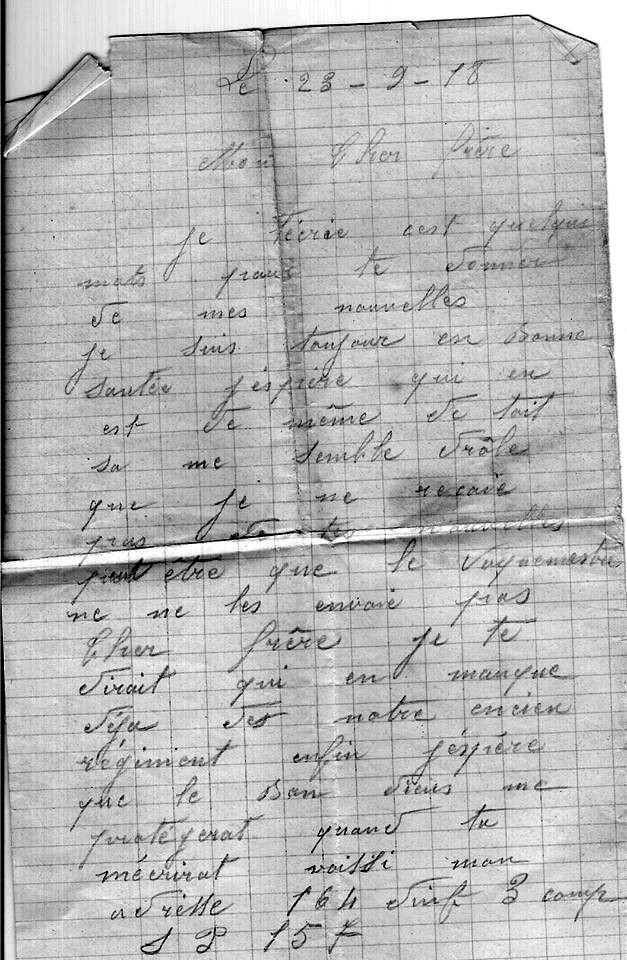 Le 23 - 9 - 18
Mon Cher frère
je técrie cest quelques
mots pour te donner
de mes nouvelles
je suis toujour en Bonne
santée j'espère qui en
est de même de toit
sa me semble drôle
que je ne recoie
pas de tes nouvelles
peut être que le vaguemestre
ne ne les envoie pas
Cher frère je te
dirait qui en manque
déja des notre encien
régiment enfin jéspère
que le Bon dieus me
protégerat quand tu
mécrirat voissi mon
adrésse 164 dinf 3 comp
S P 157